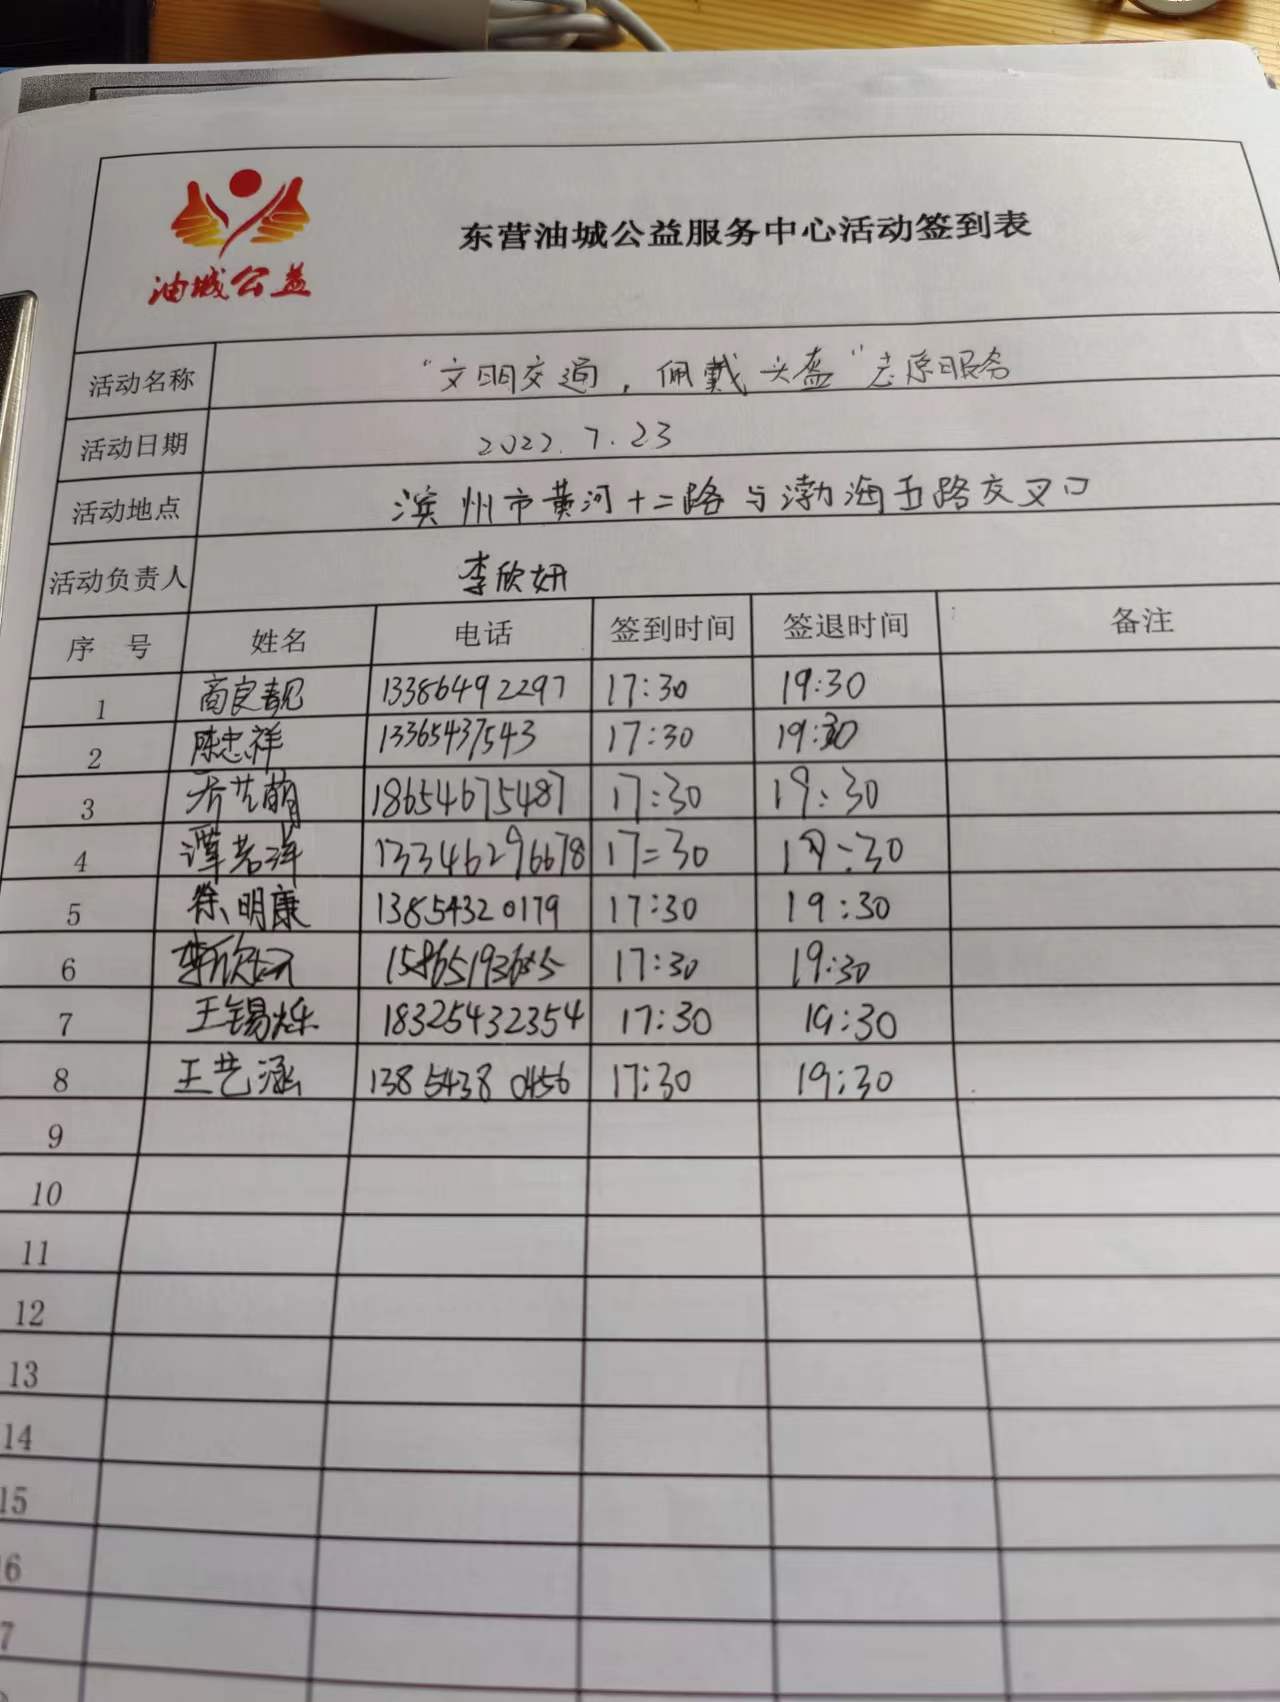 油城公益
东营油城公益服务中心活动签到表
活动名称 “文明交通，佩戴头盔”志愿服务
活动日期 2022.7.23
活动地点 滨州市黄河十二路与渤海五路交叉口
活动负责人 李欣妍
序 号 姓名 电话 签到时间 签退时间 备注
1 商良靓 13386492297 17:30 19:30
2 陈忠祥 13365437543 17:30 19:30
3 18654675487 17:30 19:30
4 谭若洋 13346296678 17:30 19:30
5 徐明康 13854320179 17:30 19:30
6 李欣妍 17:30 19:30
7 王锡烁 18325432354 17:30 19:30
8 王艺涵 13854380456 17:30 19:30
9
10
11
12
13
14
15
16
7